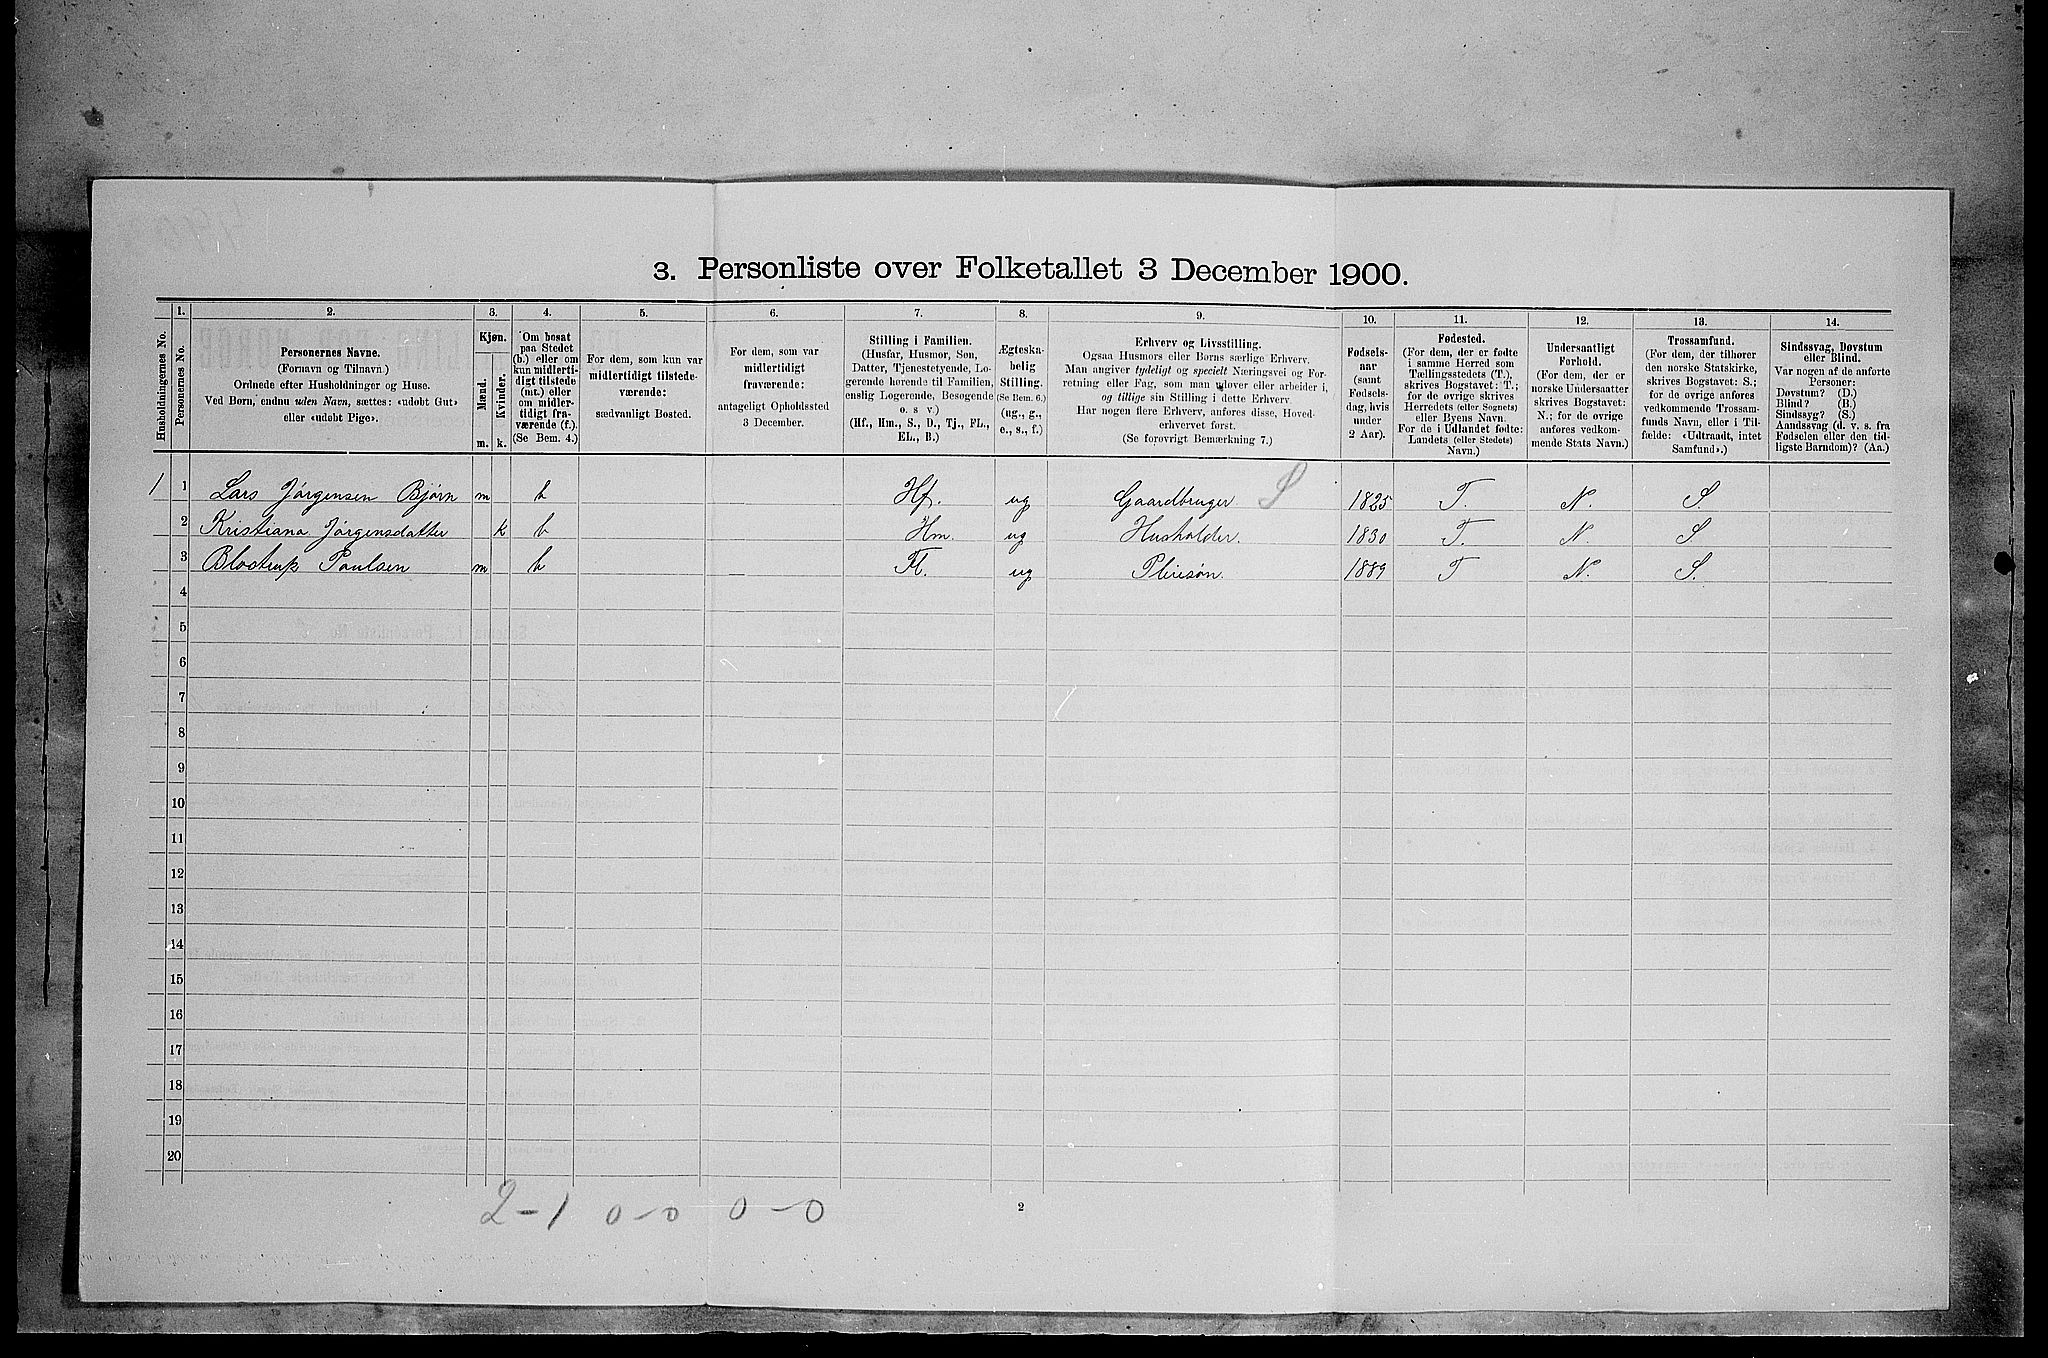 3. Personliste over Folketallet 3 December 1900.
Husholdningernes No.
1.
Personernes No.
2.
Personernes Navne.
(Fornavn og Tilnavn)
Ordnede efter Husholdninger og Huse.
Ved Børn, endnu uden Navn, sættes: «udøbt Gut»
eller «udøbt Pige».
3.
Kjøn.
Mænd.
Kvinder.
m.
k.
4.
Om bosat
paa Stedet
(b.) eller om
kun midlerti-
digt tilstede
(mt.) eller
om midler-
tidigt fra-
værende (f.).
(Se Bem. 4.)
5.
For dem, som kun var
midlertidigt tilstede-
værende:
sædvanligt Bosted.
6.
For dem, som var
midlertidigt
fraværende:
antageligt Opholdssted
3 December.
7.
Stilling i Familien.
(Husfar, Husmor, Søn,
Datter, Tjenestetyende, Lo-
gerende hørende til Familien,
enslig Logerende, Besøgende
o. s v.)
(Hf., Hm., S., D., Tj., FL.,
EL., B.)
8.
Ægteska-
belig
Stilling.
(Se Bem. 6.)
(ug., g.,
e., s., f.)
9.
Erhverv og Livsstilling.
Ogsaa Husmors eller Børns særlige Erhverv.
Man angiver tydeligt og specielt Næringsvei og For-
retning eller Fag, som man udøver eller arbeider i,
og tillige sin Stilling i dette Erhverv.
Har nogen flere Erhverv, anføres disse, Hoved-
erhvervet først.
(Se forøvrigt Bemærkning 7.)
10.
Fødsels-
aar
(samt
Fødsels-
dag, hvis
under
2 Aar).
11.
Fødested.
(For dem, der er fødte
i samme Herred som
Tællingsstedets (T.),
skrives Bogstavet: T.;
for de øvrige skrives
Herredets (eller Sognets)
eller Byens Navn.
For de i Udlandet fødte:
Landets (eller Stedets)
Navn.)
12.
Undersaatligt
Forhold.
(For dem, der er
norske Undersaatter
skrives Bogstavet:
N.; for de øvrige
anføres vedkom-
mende Stats Navn.)
13.
Trossamfund.
(For dem, der tilhører
den norske Statskirke,
skrives Bogstavet: S.;
for de øvrige anføres
vedkommende Trossam-
funds Navn, eller i Til-
fælde: «Udtraadt, intet
Samfund».)
14.
Sindssvag, Døvstum
eller Blind.
Var nogen af de anførte
Personer:
Døvstum? (D.)
Blind? (B.)
Sindssyg? (S.)
Aandssvag (d. v. s. fra
Fødselen eller den tid-
ligste Barndom)? (Aa.)
1 1 Lars Jørgensen Bjørn m b Hf. ug Gaardbruger. S 1825 T. N. S.
2 Kristiana Jørgensdatter k b Hm. ug Husholder. 1830 T. N. S
3 Paulsen m b Fl. ug Pleiesøn. 1889 T N. S.
4
5
6
7
8
9
10
11
12
13
14
15
16
17
18
19
20
2-1 0-0 0-0
2